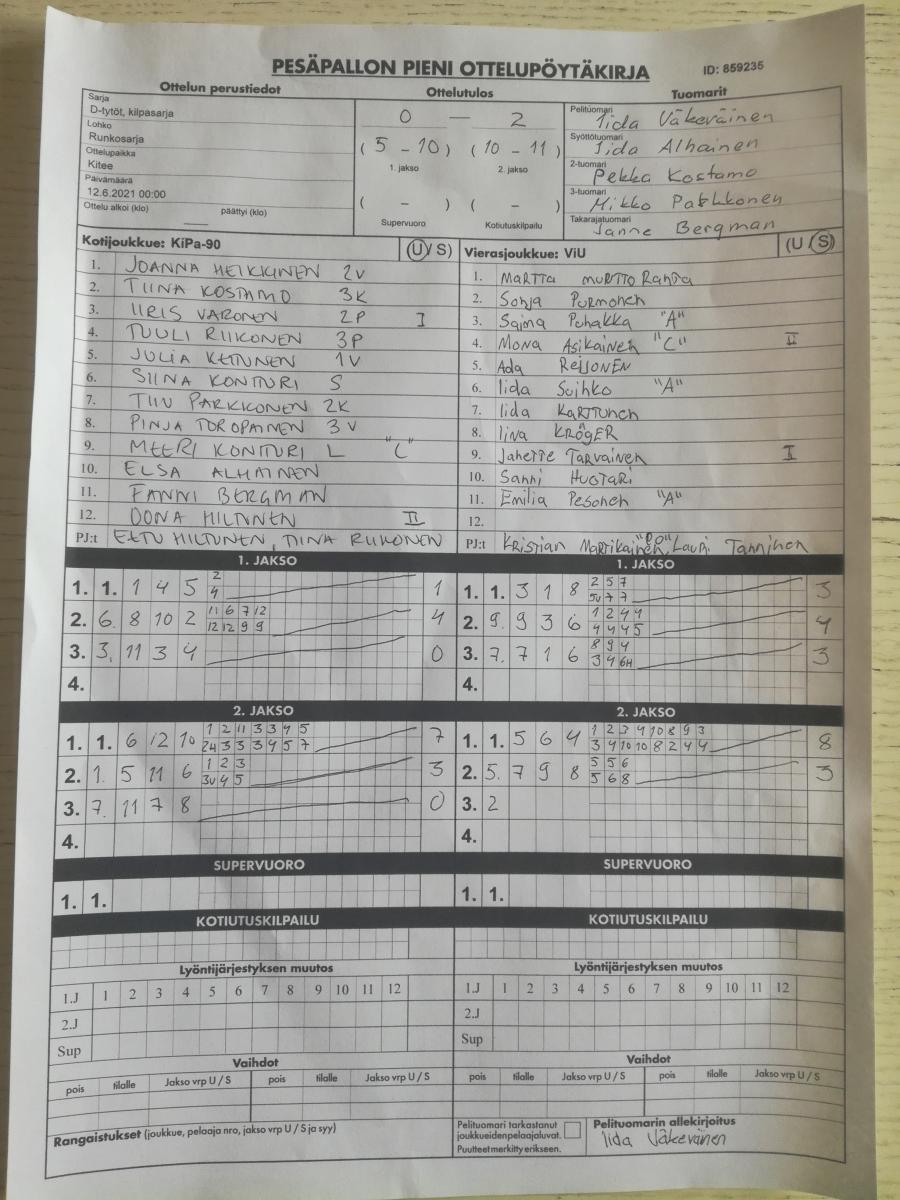 PESÄPALLON PIENI OTTELUPÖYTÄKIRJA ID: 859235
Ottelun perustiedot
Sarja
D-tytöt, kilpasarja
Lohko
Runkosarja
Ottelupaikka
Kitee
Päivämäärä
12.6.2021 00:00
Ottelu alkoi (klo) päättyi (klo)
Ottelutulos
0 — 2
(5 - 10) (10 - 11)
1. jakso 2. jakso
( - ) ( - )
Supervuoro Kotiutuskilpailu
Tuomarit
Pelituomari
Iida Väkeväinen
Syöttötuomari
Iida Alhainen
2-tuomari
Pekka Kostamo
3-tuomari
Mikko Pakkkonen
Takarajatuomari
Janne Bergman
Kotijoukkue: KiPa-90 (U/S)
1. JOANNA HEIKKINEN 2V
2. TIINA KOSTAMO 3K
3. IIRIS VARONEN 2P I
4. TUULI RIIKONEN 3P
5. JULIA KETTUNEN 1V
6. SIINA KONTTURI S
7. TIIU PARKKONEN 2K
8. PINJA TOROPAINEN 3V
9. MEERI KONTTURI L "C"
10. ELSA ALHAINEN
11. FANNI BERGMAN
12. OONA HILTUNEN II
PJ:t EETU HILTUNEN, TIINA RIIKONEN
Vierasjoukkue: ViU (U/S)
1. Martta Murtto Ranta
2. Sonja Purmonen
3. Saima Puhakka "A"
4. Mona Asikainen "C" II
5. Ada REIJONEN
6. Iida Suihko "A"
7. Iida Karttunen
8. Iina KRÖGER
9. Janette Tarvainen I
10. Sanni Huotari
11. Emilia Pesonen "A"
12.
PJ:t Kristian Martikainen, "PO" Lauri Tanninen
1. JAKSO
1. 1. 1 4 5 2 1
4
2. 6. 8 10 2 11 6 7 12 4
12 12 9 9
3. 3. 11 3 4 0
4.
1. JAKSO
1. 1. 3 1 8 2 5 7 3
5V 7 7
2. 9. 9 3 6 1 2 4 4 4
4 4 4 5
3. 7. 7 1 6 8 9 4 3
3 4 6H
4.
2. JAKSO
1. 1. 6 12 10 1 2 11 3 3 4 5 7
2H 3 3 3 4 5 7
2. 1. 5 11 6 1 2 3 3
3V 4 5
3. 7. 11 7 8 0
4.
2. JAKSO
1. 1. 5 6 4 1 2 3 4 10 8 9 3 8
3 4 10 10 8 2 4 4
2. 5. 7 9 8 5 5 6 3
5 6 8
3. 2
4.
SUPERVUORO
1. 1.
SUPERVUORO
1. 1.
KOTIUTUSKILPAILU
KOTIUTUSKILPAILU
Lyöntijärjestyksen muutos
1.J 1 2 3 4 5 6 7 8 9 10 11 12
2.J
Sup
Lyöntijärjestyksen muutos
1.J 1 2 3 4 5 6 7 8 9 10 11 12
2.J
Sup
Vaihdot
pois tilalle Jakso vrp U / S pois tilalle Jakso vrp U / S
Vaihdot
pois tilalle Jakso vrp U / S pois tilalle Jakso vrp U / S
Rangaistukset (joukkue, pelaaja nro, jakso vrp U / S ja syy)
Pelituomari tarkastanut
joukkueidenpelaajaluvat.
Puutteetmerkitty erikseen.
Pelituomarin allekirjoitus
Iida Väkeväinen